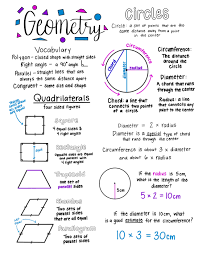 Geometry
Vocabulary
Polygon - closed shape with straight sides
Right angle - a 90° angle
Parallel - straight lines that are always the same distance apart
Congruent - same size and shape
Quadrilaterals
four sided figures
Square
4 equal sides & 4 right angles
Rectangle
Opposite sides are equal and parallel with 4 right angles
Trapezoid
one set of parallel sides
Rhombus
Two sets of parallel sides that are all equal
Parallelogram
Two sets of parallel sides
Circles
Circle: a set of points that are the same distance away from a point in the center
radius
Circumference:
The distance around the Circle
Diameter:
A chord that runs through the center
Chord: a line that connects two points of a circle
Radius: a line connecting any point to the center
Diameter = 2 × radius
Diameter is a special type of chord that runs through the center
Circumference is about 3 × diameter and about 6 × radius
5cm
If the radius is 5cm, what is the length of the diameter?
5 × 2 = 10cm
If the diameter is 10cm, what is a good estimate for the circumference?
10 × 3 = 30cm